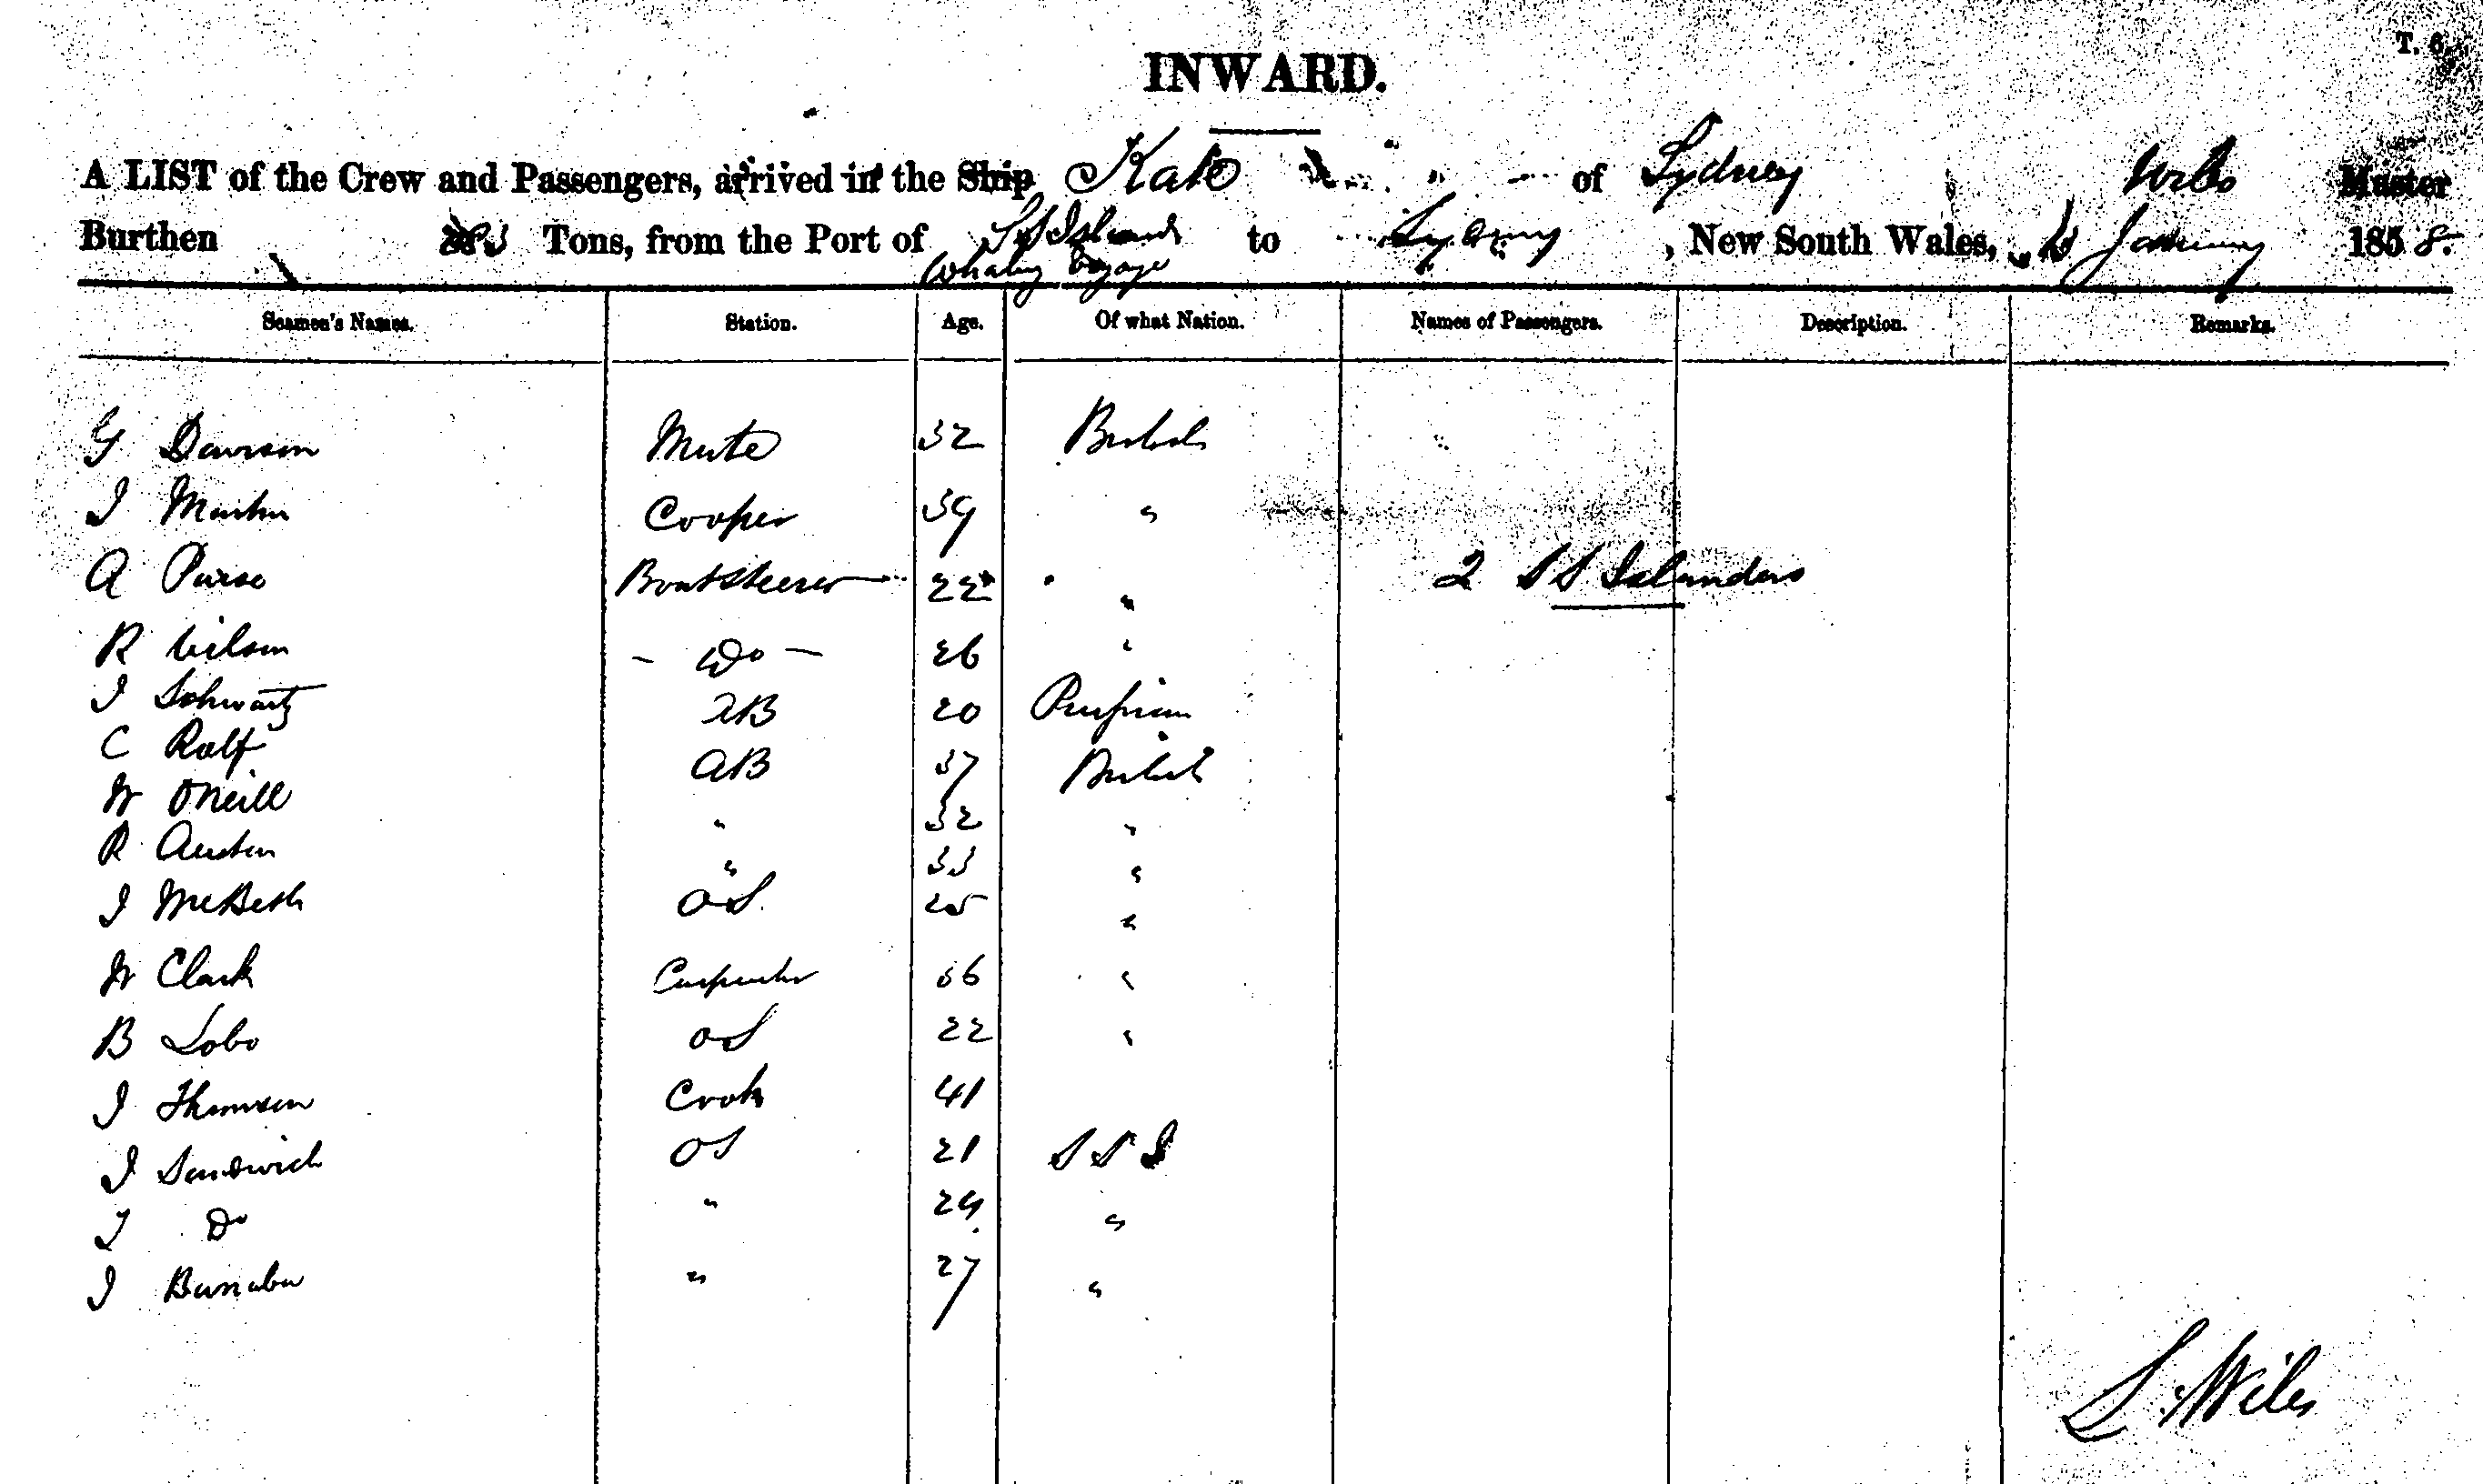 T. 6.
INWARD.
A LIST of the Crew and Passengers, arrived in the Ship Kate of Sydney Wiles Master
Burthen Tons, from the Port of S S Islands to Sydney, New South Wales, January 1858.
Whaling Voyage
Seamen's Names. Station. Age. Of what Nation. Names of Passengers. Description. Remarks.
G Dawson Mate 32 British
J Cooper 39 "
A Boatsteerer 22 " 2 S S Islanders
R Wilson - Do - 26 "
J Schwartz AB 20 Prussian
C Rolf AB 37 British
W O'Neill " 32 "
R Austin " 33 "
J McBeth OS. 25 "
W Clark Carpenter 36 "
B Lobo OS 22 "
J Thomson Cook 41
J Sandwich OS 21 S S I
J Do " 24 "
J Barnaba " 27 "
S. Wiles